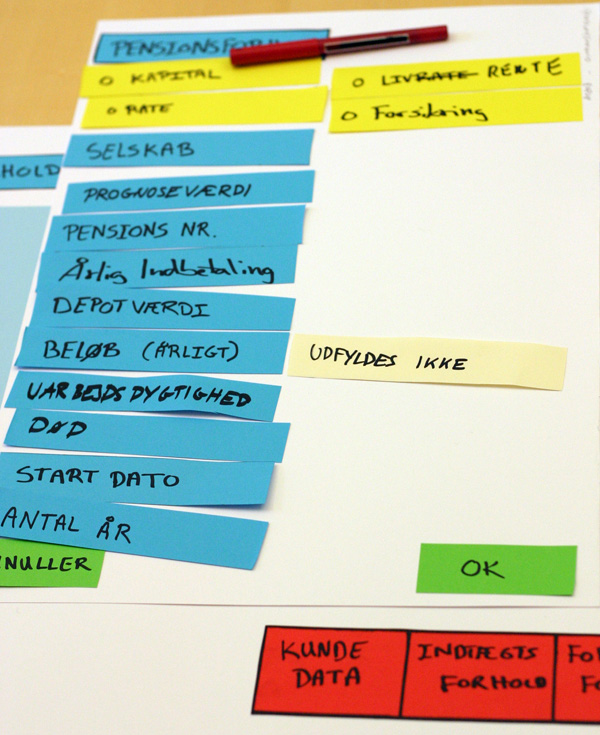 PENSIONSFOR
O KAPITAL
O LIVRATE RENTE
O RATE
O Forsikring
SELSKAB
HOLD
PROGNOSEVÆRDI
PENSIONS NR.
Årlig Indbetaling
DEPOTVÆRDI
BELØB (ÅRLIGT)
UDFYLDES IKKE
UARBEJDSDYGTIGHED
DØD
START DATO
ANTAL ÅR
NULLER
OK
KUNDE
DATA
INDTÆGTS
FORHOLD
FO
FO